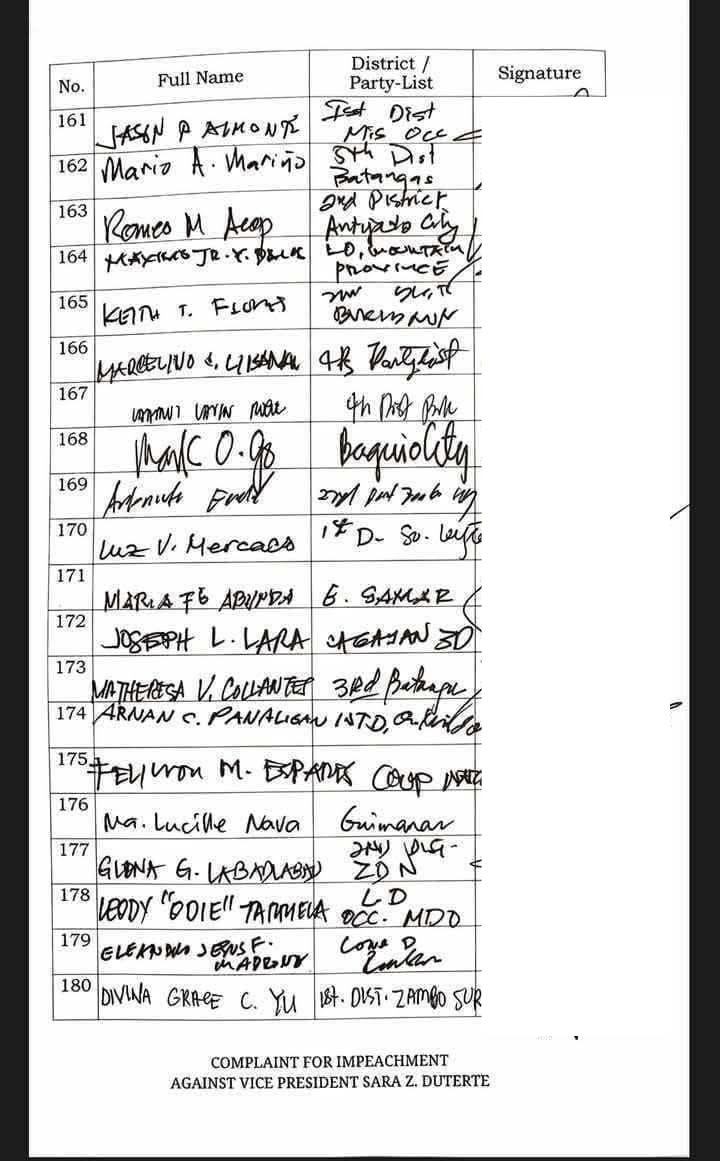 No. Full Name District / Party-List Signature
161 JASON P ALMONTE 1st Dist
Mis Occ
162 Mario A. Mariño 5th Dist
Batangas
163 Romeo M Acop 2nd District
Antipolo City
164 MAXIMO JR. Y. LD, MOUNTAIN
PROVINCE
165 KEITH T. FLORES
166 MARCELINO LIBANAN 4Ps Partylist
167 4th Dist
168 Mark O. go Baguio City
169 2nd
170 Luz V. Mercado 1st D- So. Leyte
171 MARIA FE ABUNDA E. SAMAR
172 JOSEPH L. LARA CAGAYAN 3D
173 MA THERESA V. COLLANTES 3Rd Batangas
174 ARNAN C. PANALIGAN 1ST D,
175 M. ESPARES COOP
176 Ma. Lucille Nava Guimaras
177 GLONA G. LABADLABAD 2ND
ZDN
178 LEODY "ODIE" TARRIELA LD
OCC. MDO
179 ELEANDRO JESUS F. Lone D
MADRONA
180 DIVINA GRACE C. YU 1st. DIST. ZAMBO SUR
COMPLAINT FOR IMPEACHMENT
AGAINST VICE PRESIDENT SARA Z. DUTERTE